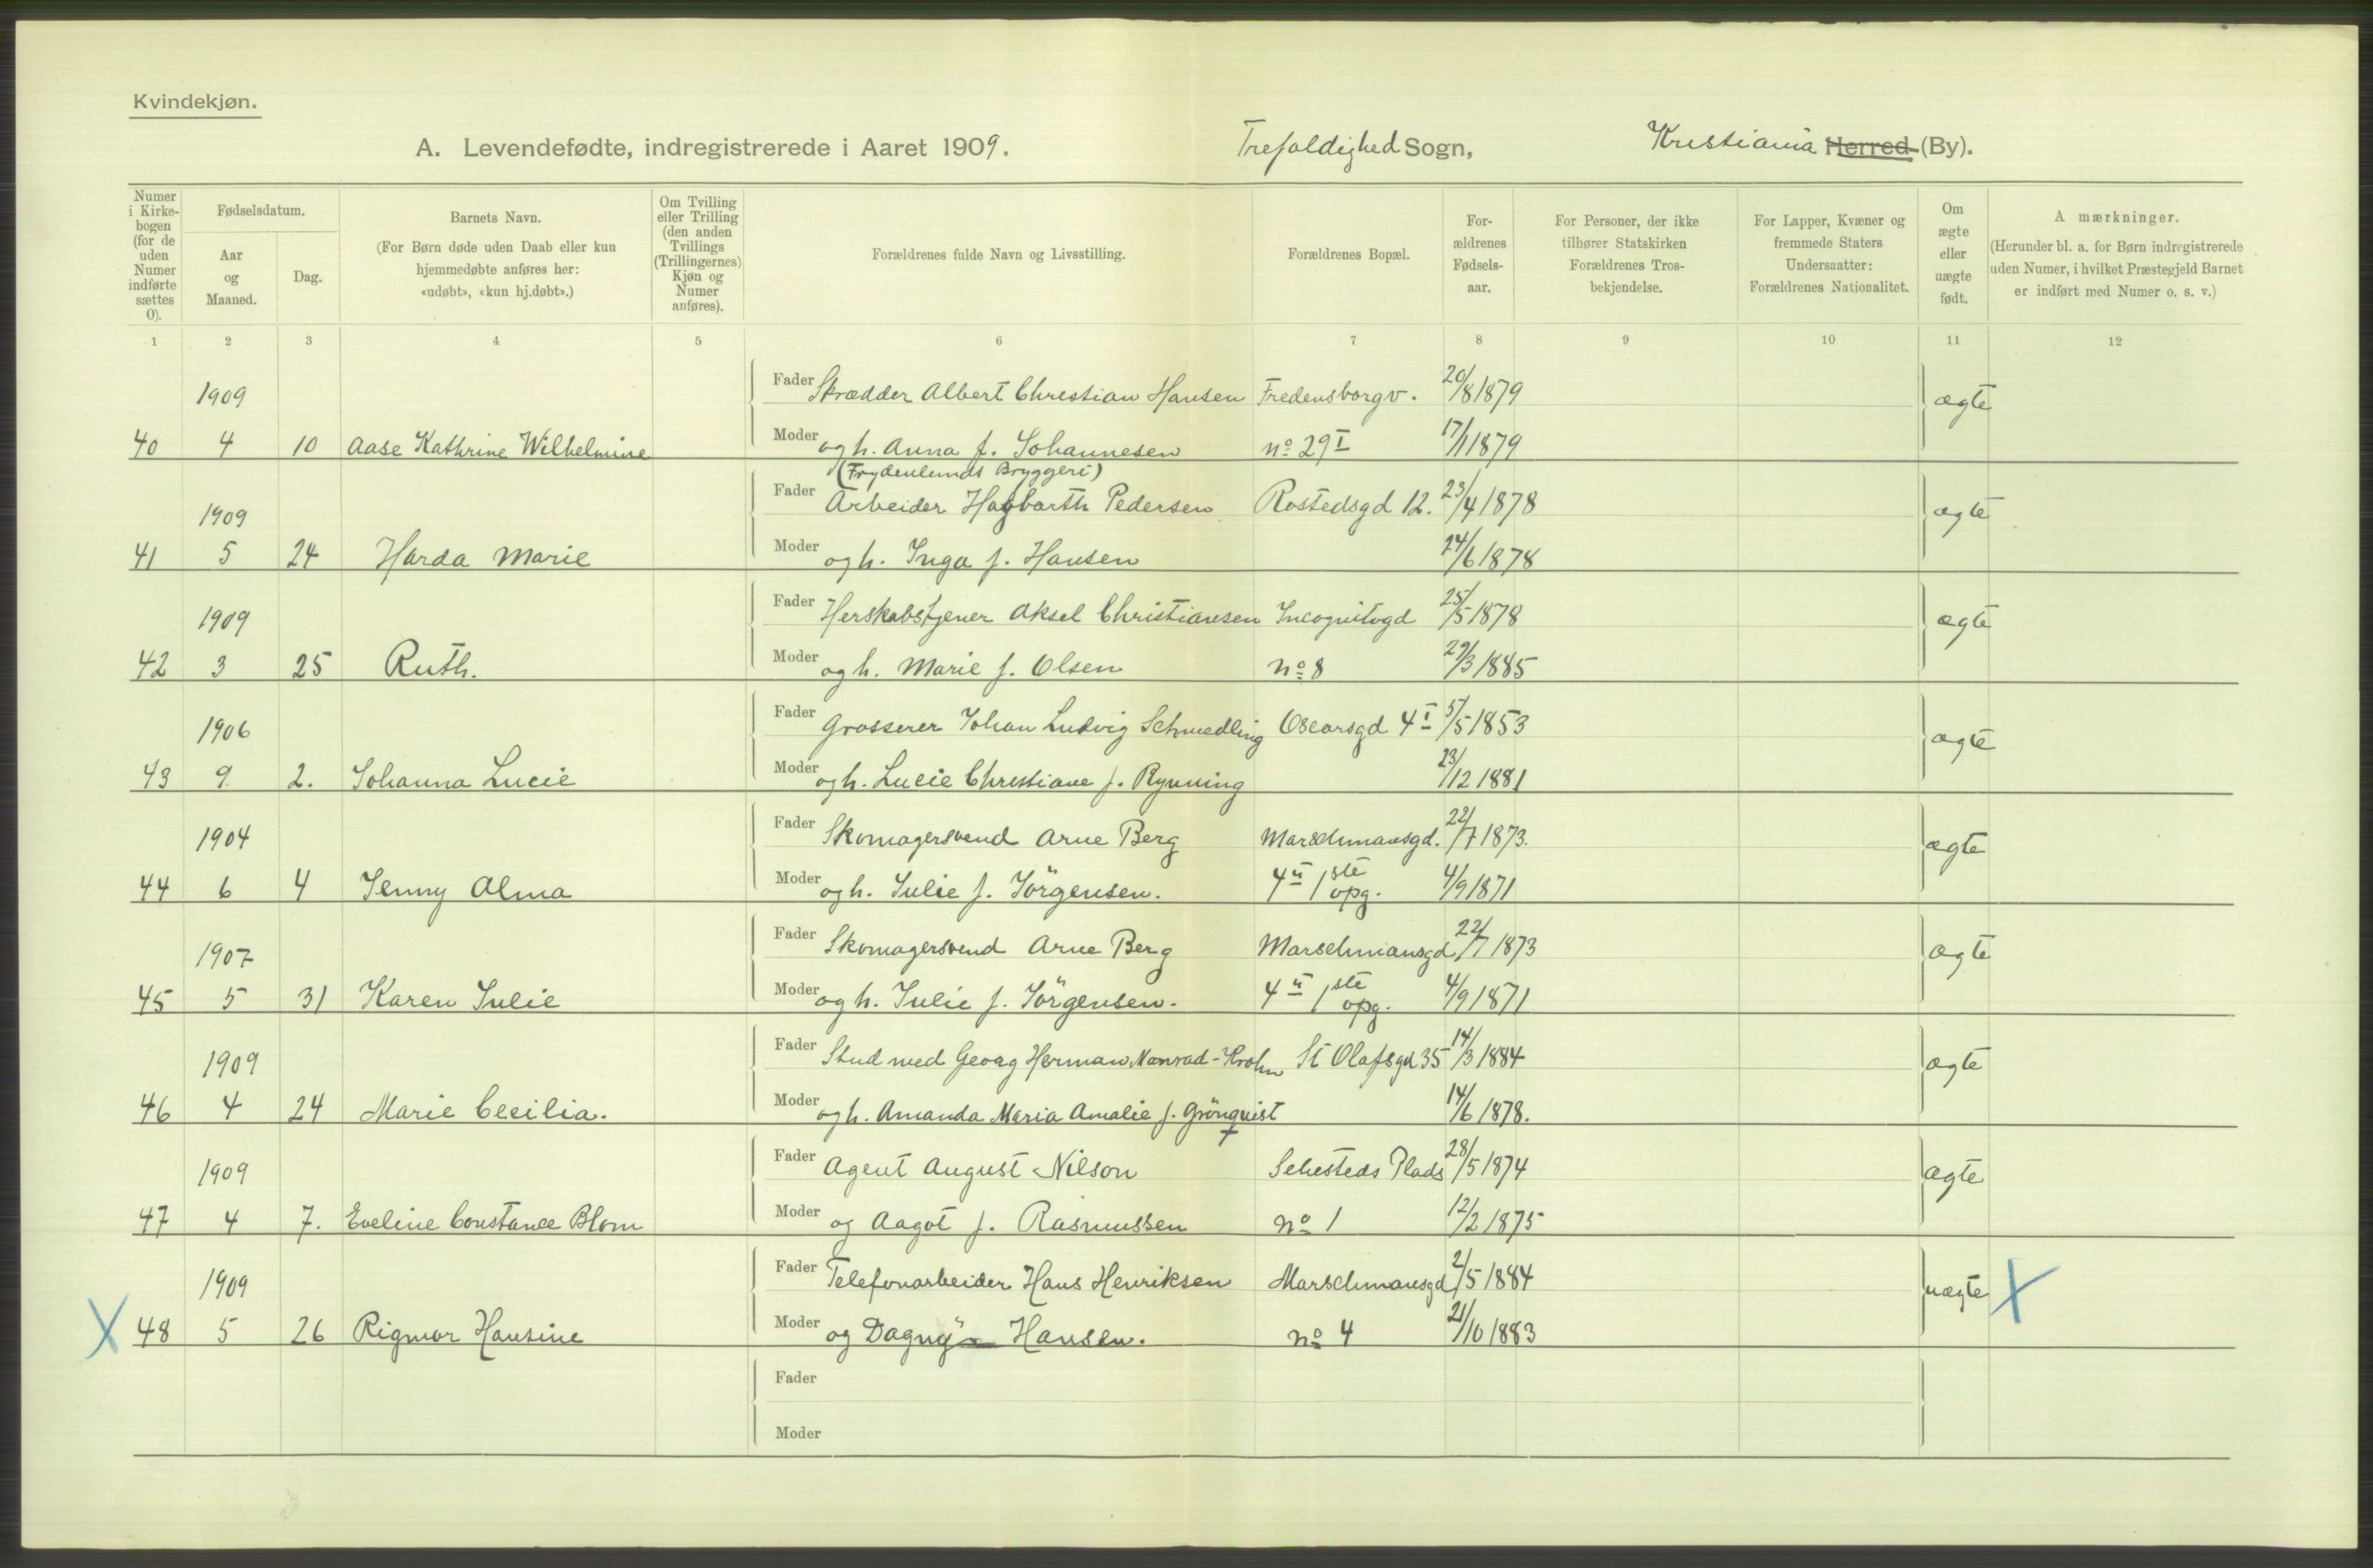 Kvindekjøn.
A. Levendefødte, indregistrerede i Aaret 1909. Trefoldighed Sogn, Kristiania Herred (By).
Numer i Kirke-bogen (for de uden Numer indførte sættes 0).
Fødselsdatum.
Aar og Maaned.
Dag.
Barnets Navn.
(For Børn døde uden Daab eller kun hjemmedøbte anføres her: «udøbt», «kun hj.døbt».)
Om Tvilling eller Trilling (den anden Tvillings (Trillingernes) Kjøn og Numer anføres).
Forældrenes fulde Navn og Livsstilling.
Forældrenes Bopæl.
For-ældrenes Fødsels-aar.
For Personer, der ikke tilhører Statskirken Forældrenes Tros-bekjendelse.
For Lapper, Kvæner og fremmede Staters Undersaatter: Forældrenes Nationalitet.
Om ægte eller uægte født.
Amærkninger.
(Herunder bl. a. for Børn indregistrerede uden Numer, i hvilket Præstegjeld Barnet er indført med Numer o. s. v.)
1 2 3 4 5 6 7 8 9 10 11 12
1909 Fader Skrædder Albert Christian Hansen Fredensborgv. 20/8 1879 ægte
40 4 10 Aase Kathrine Wilhelmine Moder og h. Anna f. Johannesen no 29 I 17/1 1879
(Frydenlunds Bryggeri)
1909 Fader Arbeider Hagbarth Pedersen Rostedsgd 12. 23/4 1878 ægte
41 5 24 Harda Marie Moder og h. Inga f. Hansen 24/6 1878
1909 Fader Herskabstjener Aksel Christiansen Incognitogd 25/5 1878 ægte
42 3 25 Ruth. Moder og h. Marie f. Olsen no 8 29/3 1885
1906 Fader Grosserer Johan Ludvig Schmedling Oscarsgd 4 I 5/5 1853 ægte
43 9 2. Johanna Lucie Moder og h. Lucie Christiane f. Rynning 23/12 1881
1904 Fader Skomagersvend Arne Berg Marschmansgd. 22/7 1873. ægte
44 6 4 Jenny Alma Moder og h. Julie f. Jörgensen. 4 II 1 ste opg. 4/9 1871
1907 Fader Skomagersvend Arne Berg Marschmansgd 22/7 1873 ægte
45 5 31 Karen Julie Moder og h. Julie f. Jörgensen. 4 II 1 ste opg. 4/9 1871
1909 Fader Stud med Georg Herman Monrad-Krohn St Olafsgd 35 14/3 1884 ægte
46 4 24 Marie Cecilia. Moder og h. Amanda Maria Amalie f. Grönqvist 14/6 1878.
1909 Fader Agent August Nilson Sehesteds Plads 28/5 1874 ægte
47 4 7. Eveline Constance Blom Moder og Aagot f. Rasmussen no 1 12/2 1875
1909 Fader Telefonarbeider Hans Henriksen Marschmansgd 2/5 1884 uægte X
X 48 5 26 Rigmor Hansine Moder og Dagny Hansen. no 4 21/10 1883
Fader
Moder